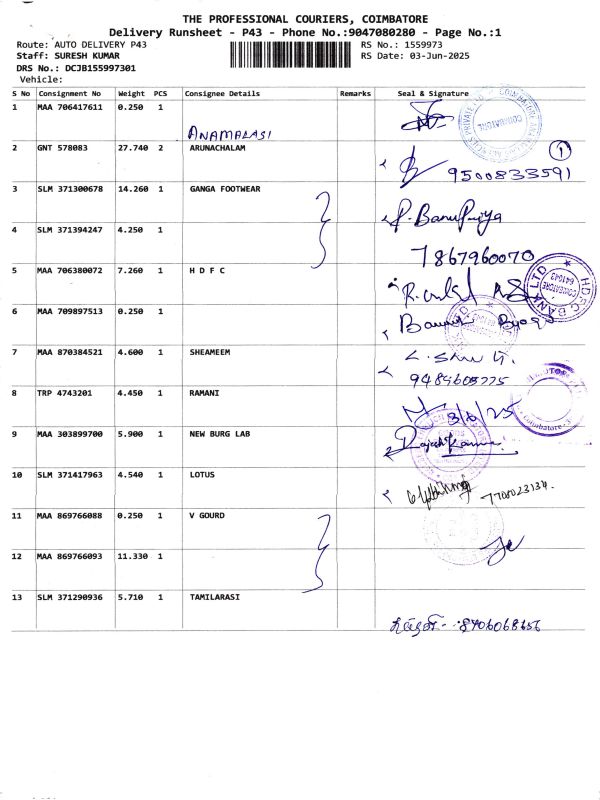 THE PROFESSIONAL COURIERS, COIMBATORE
Delivery Runsheet - P43 - Phone No.:9047080280 - Page No.:1
Route: AUTO DELIVERY P43 RS No.: 1559973
Staff: SURESH KUMAR RS Date: 03-Jun-2025
DRS No.: DCJB155997301
Vehicle:
S No Consignment No Weight PCS Consignee Details Remarks Seal & Signature
1 MAA 706417611 0.250 1
ANAMALASI
2 GNT 578083 27.740 2 ARUNACHALAM 1
9500833591
3 SLM 371300678 14.260 1 GANGA FOOTWEAR
P. Banupriya
4 SLM 371394247 4.250 1
7867960070
5 MAA 706380072 7.260 1 H D F C
HDFC BANK LTD COIMBATORE 641043
6 MAA 709897513 0.250 1
7 MAA 870384521 4.600 1 SHEAMEEM
9489603775
8 TRP 4743201 4.450 1 RAMANI
3/6/25
Coimbatore
9 MAA 303899700 5.900 1 NEW BURG LAB
Rajesh Kumar
10 SLM 371417963 4.540 1 LOTUS
7708023134.
11 MAA 869766088 0.250 1 V GOURD
12 MAA 869766093 11.330 1
13 SLM 371290936 5.710 1 TAMILARASI
8906068656